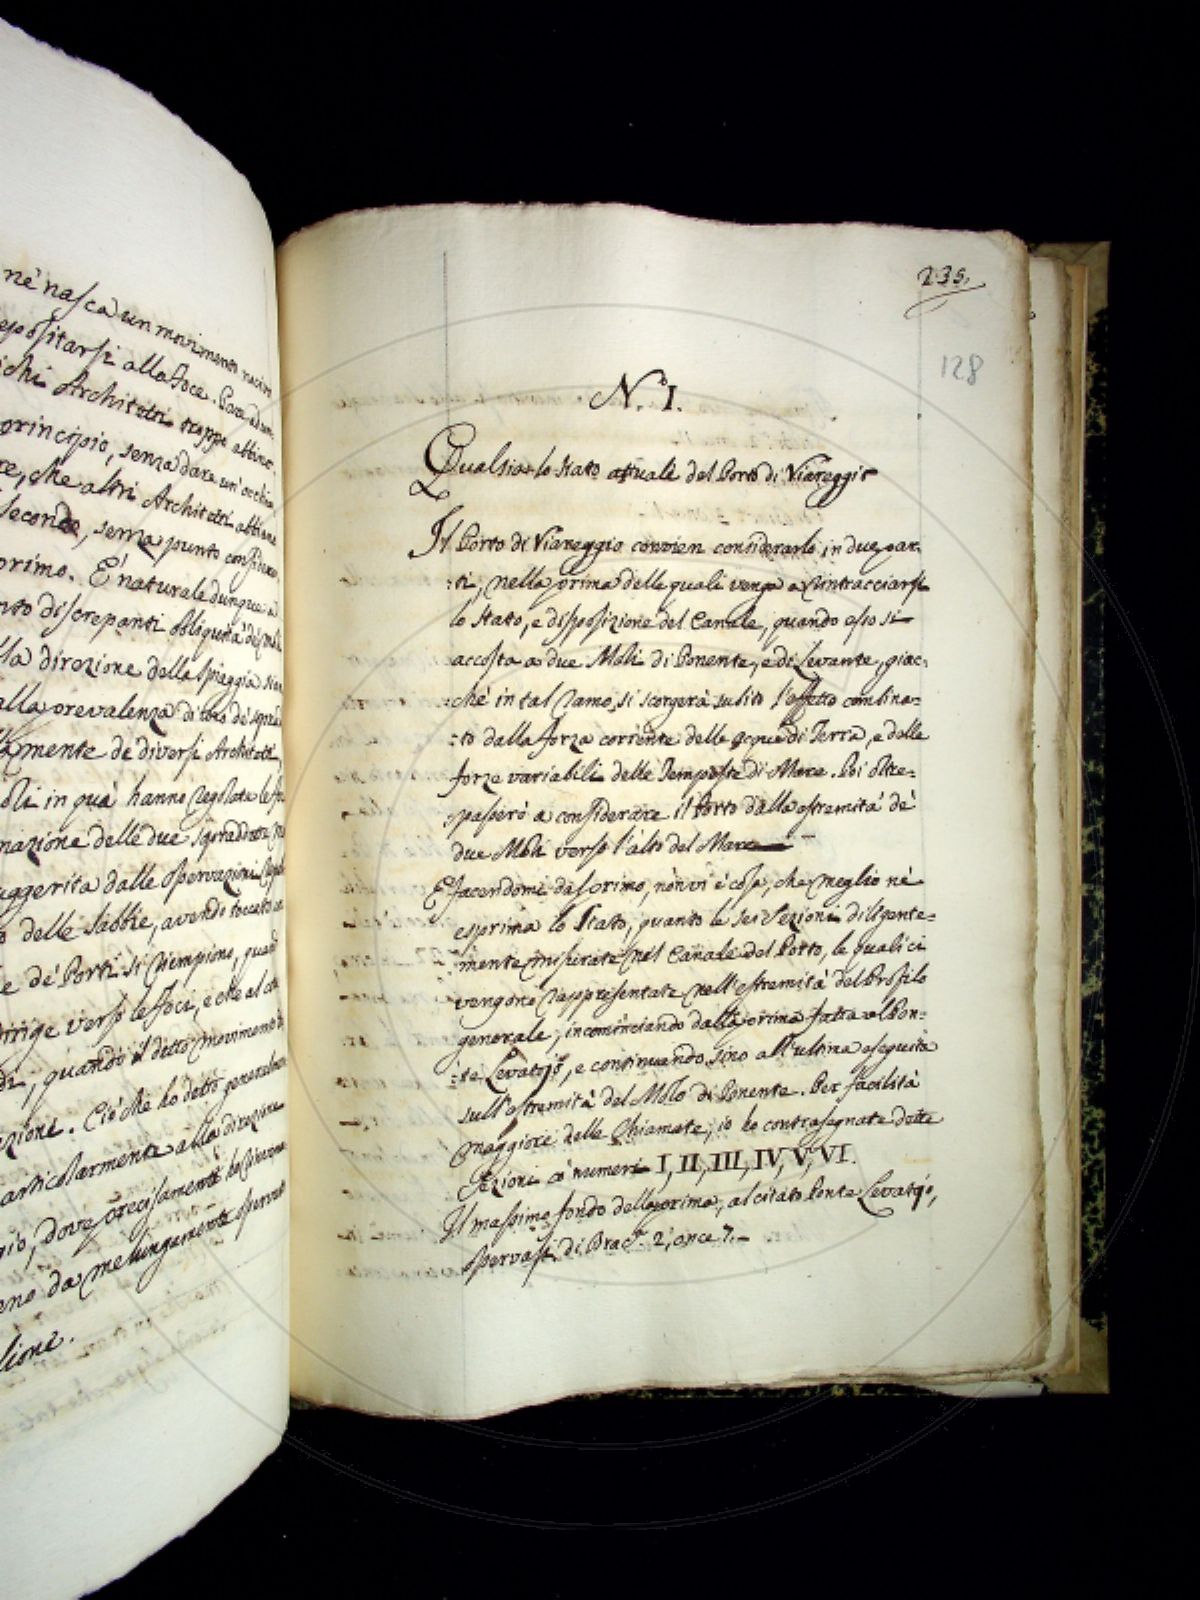 nè nasca un movimento
epositarsi alla Foce.
ichi Architetti troppo abbino
principio, senza dare un'occhia
re, che altri Architetti abbiano
secondo, senza punto
primo. È naturale dunque
nto discrepanti obliquità de
la direzione della spiaggia
alla prevalenza di uno de
mente de diversi Architetti
oli in quà hanno regolate le
nazione delle due
uggerita dalle Osservazioni
o delle sabbie, avendo toccato
e de Porti si riempiono, quando
dirige verso le Foci, e che al
di, quando il detto movimento
zione. Ciò che ho detto generalmente
articolarmente alla direzione
gio, dove precisamente
eno da me lungamente
lione.
235.
128
N.° I.
Qual sia lo stato attuale del Porto di Viareggio
Il Porto di Viareggio convien considerarlo in due par-
:ti; nella prima delle quali venga a rintracciarsi
lo stato, e disposizione del Canale, quando esso si
accosta a due Moli di Ponente, e di Levante, giac:
:chè in tal ramo si scorgerà subito l'effetto combina=
:to dalla forza corrente delle acque di Terra, e dalle
forze variabili delle Tempeste di Mare. Poi oltre=
:passerò a considerare il Porto dalla estremità de
due Moli verso l'alto del Mare
E facendomi dal primo, non vi è cosa, che meglio nè
esprima lo Stato, quanto le sei Sezioni diligente=
mente misurate nel Canale del Porto, le quali ci
vengono rappresentate nell'estremità del Profilo
generale, incominciando dalla prima fatta al Pon:
:te Levatojo, e continuando sino all'ultima eseguita
sull'estremità del Molo di Ponente. Per facilità
maggiore delle Chiamate, io ho contrasegnate dette
Sezioni co' numeri I, II, III, IV, V, VI.
Il massimo fondo della prima, al citato Ponte Levatojo,
osservasi di Brac. 2, once 7.